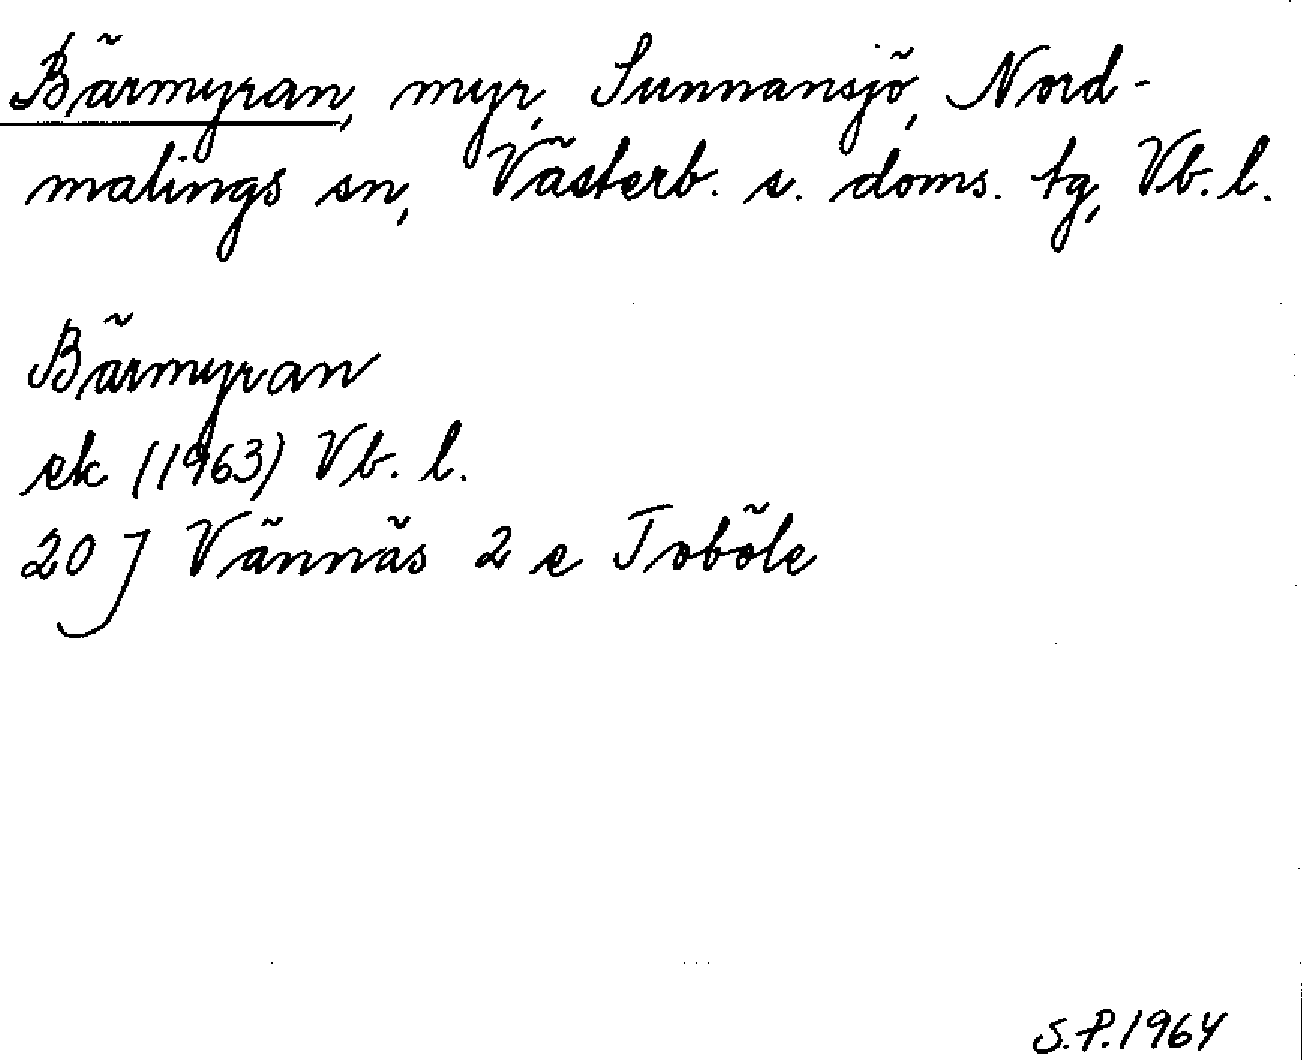 Bärmyran, myr, Sunnansjö, Nord-
malings sn, Västerb. s. doms. tg, Vb. l.
Bärmyran
ek (1963) Vb. l.
20 J Vännäs 2 e Toböle
S.P. 1964